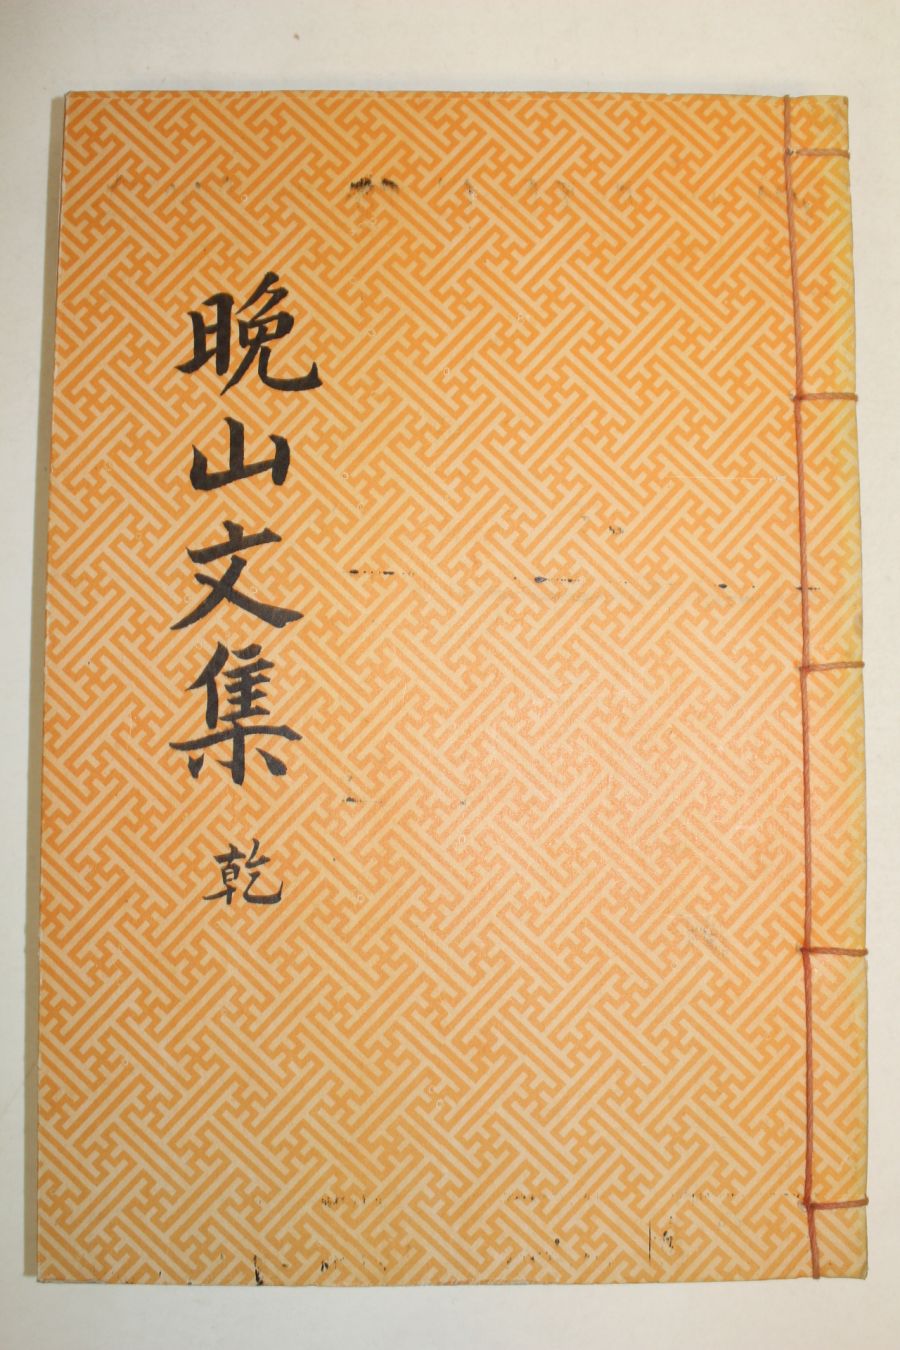 晩山文集
乾